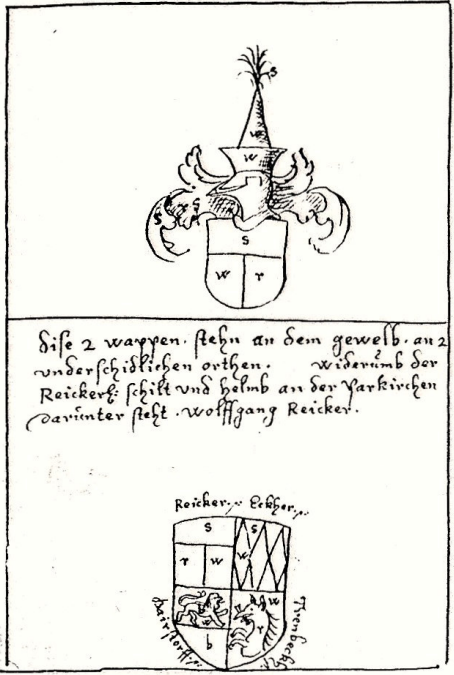 S
w
w
S
S
w r
dise 2 wappen. stehn an dem gewelb. an 2
underschidlichen orthen. widerumb der
Reickerh: schilt und helmb an der Parkirchen
darunter steht. Wolffgang Reicker.
Reicker. Eckher.
S S
r w w
w
b r
Hairstorff